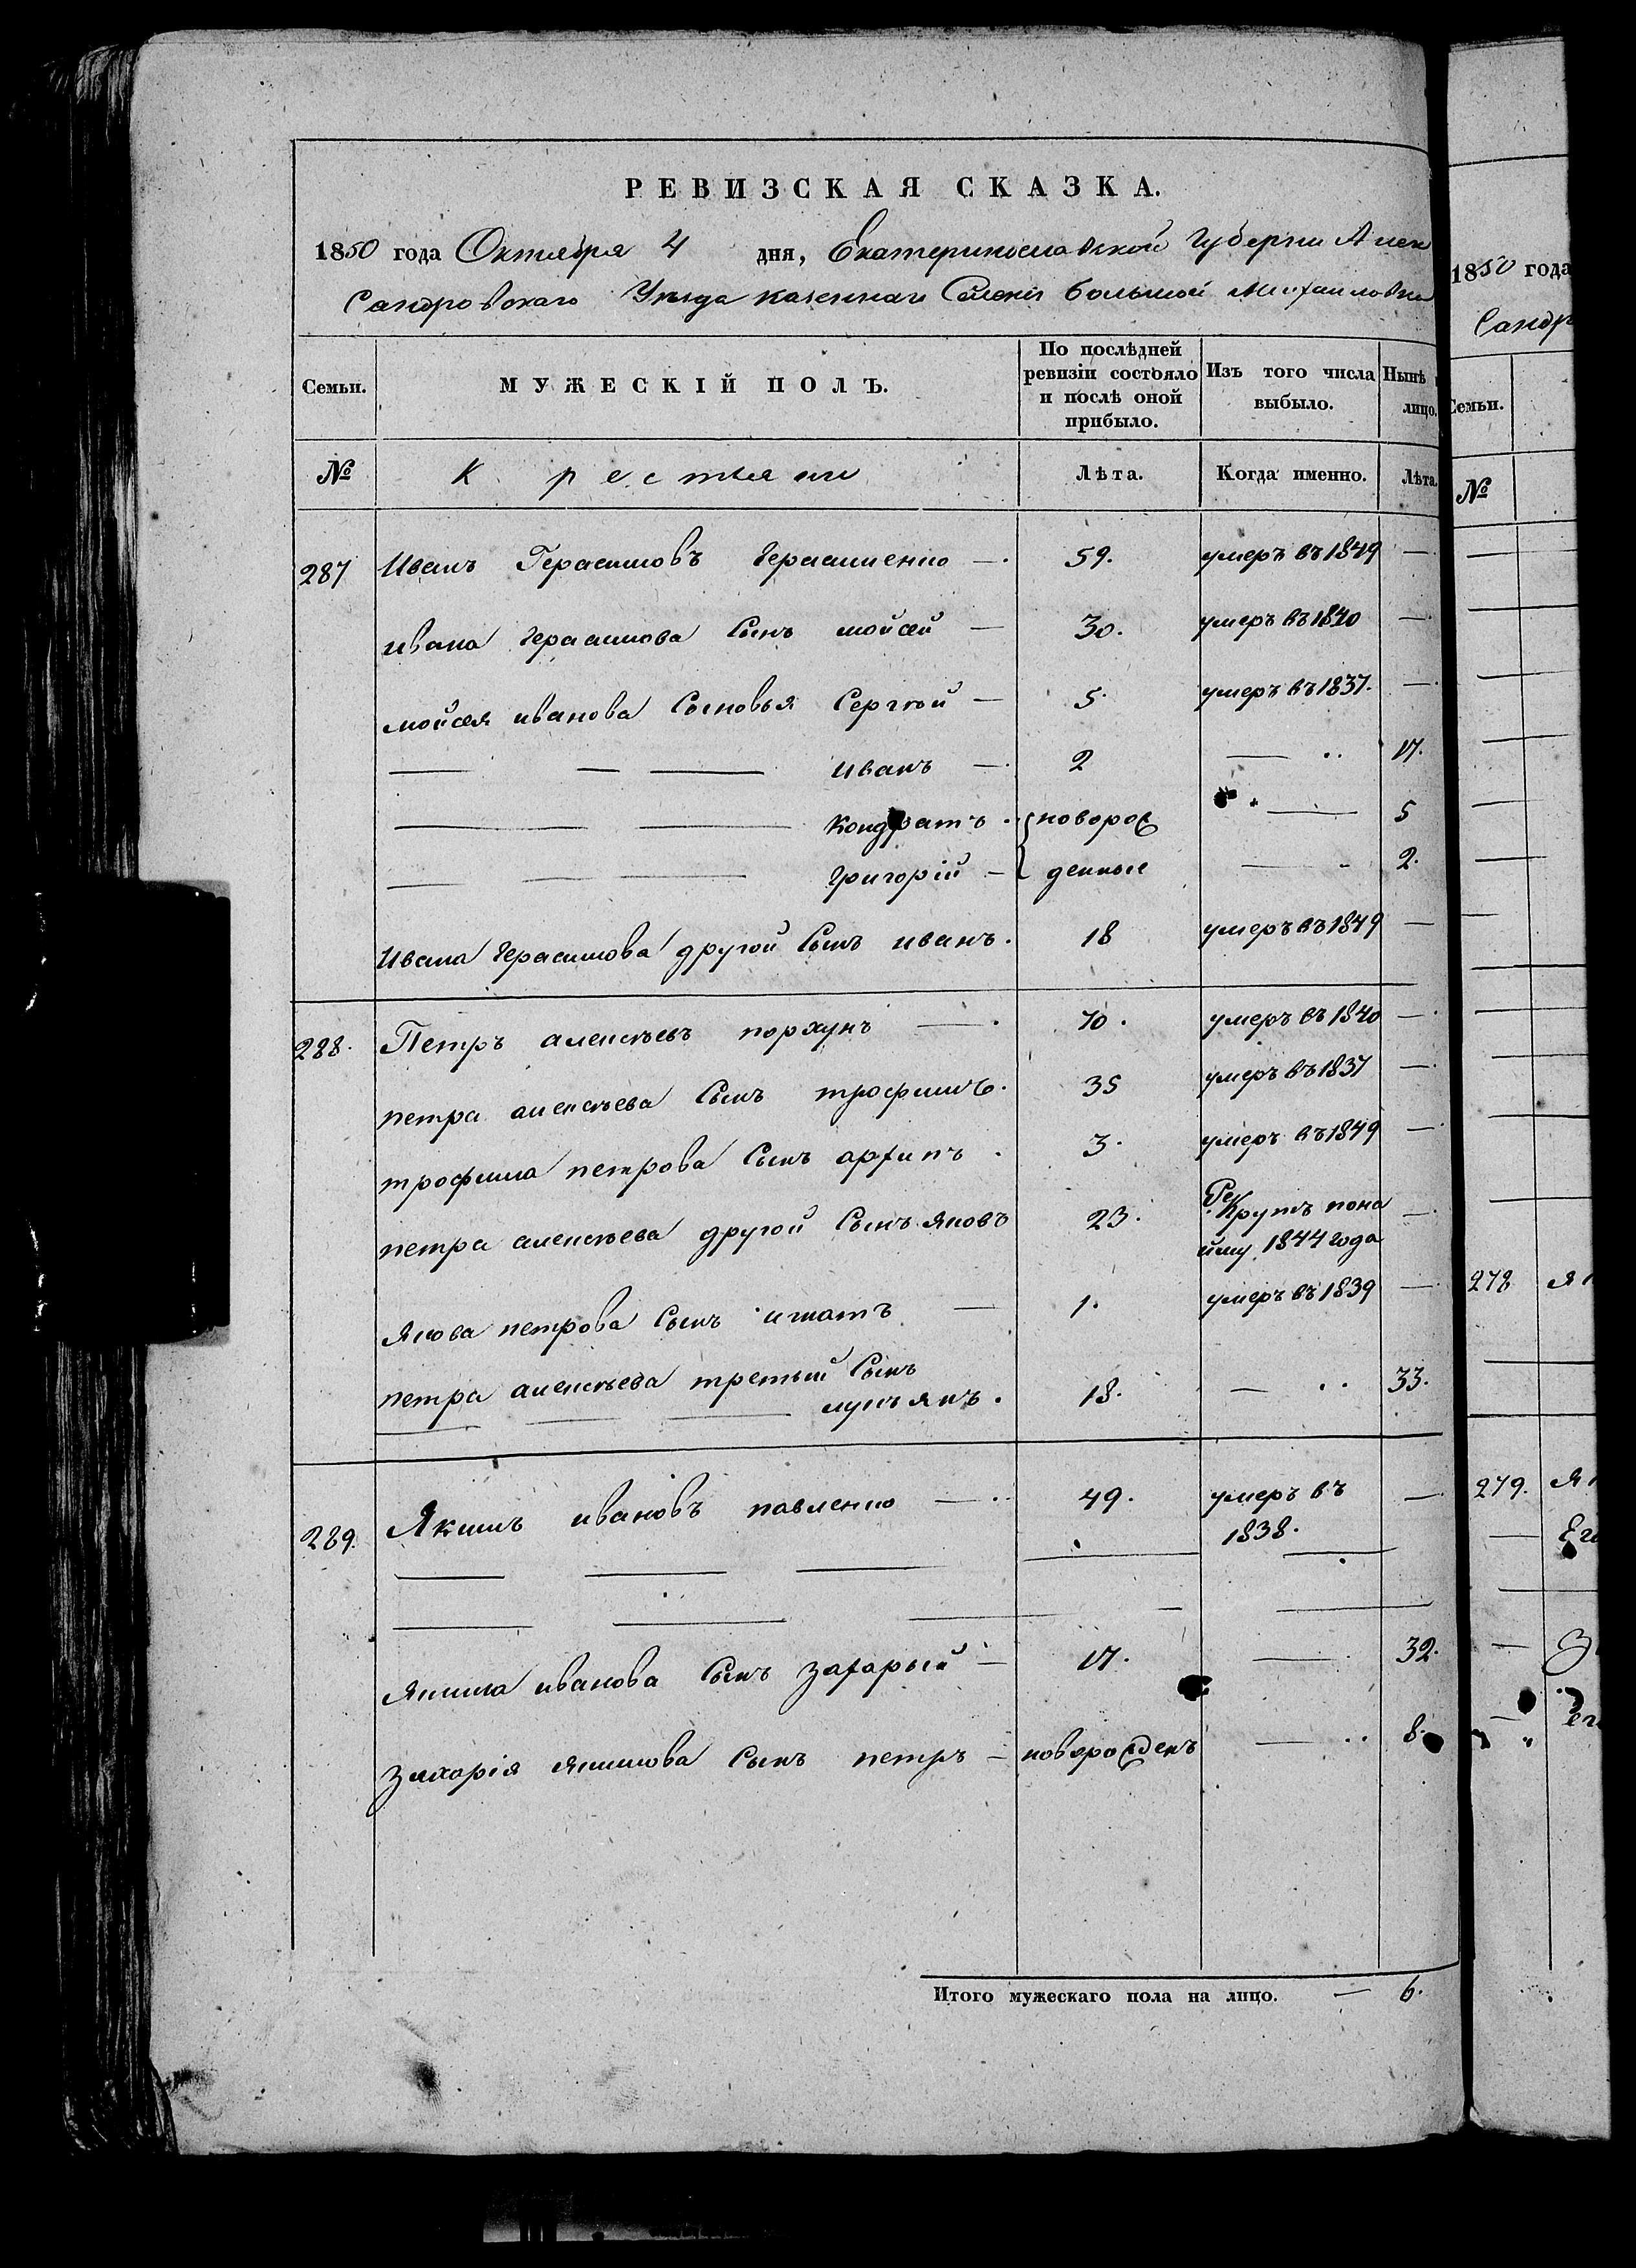 РЕВИЗСКАЯ СКАЗКА.
1850 года Октября 4 дня, Екатеринославской Губерни Алек
Сандровскаго Уѣзда казеннаго Селенія большой Михаиловки
Семьи. МУЖЕСКІЙ ПОЛЪ. По послѣдней ревизіи состояло и послѣ оной прибыло. Изъ того числа выбыло. Нынѣ лицо.
№ Крестьяни Лѣта. Когда именно. Лѣта.
287 Иванъ Герасимовъ Герасименко — . 59. умеръ въ 1849 —
ивана Герасимова Сынъ мойсей — 30. умеръ въ 1840 —
мойсея иванова Сыновья Сергѣй — 5. умеръ въ 1837. —
— — — иванъ — 2 — .. 17.
— — Кондратъ . новорож — 5
— — — Григорій — денные — 2.
Ивана Герасимова другой Сынъ иванъ. 18 умеръ въ 1849 —
288. Петръ алексѣевъ порхунъ — . 70. умеръ въ 1840 —
петра алексѣева Сынъ трофимъ. 35 умеръ въ 1837 —
трофима петрова Сынъ архипъ . 3. умеръ въ 1849 —
петра алексѣева другой Сынъ яковъ 23. Рекрутъ пона —
йму 1844 года
якова петрова Сынъ игнатъ — 1. умеръ въ 1839 —
петра алексѣева третый Сынъ
— — — лукъянъ . 18. — .. 33.
289. Якимъ ивановъ павленко — .. 49. умеръ въ —
1838.
якима иванова Сынъ захарый — 17. — . 32.
захарія якимова Сынъ петръ — новорожденъ — .. 8.
Итого мужескаго пола на лицо. — 6.
1850 года
Сандр
Семьи.
№
278
279.